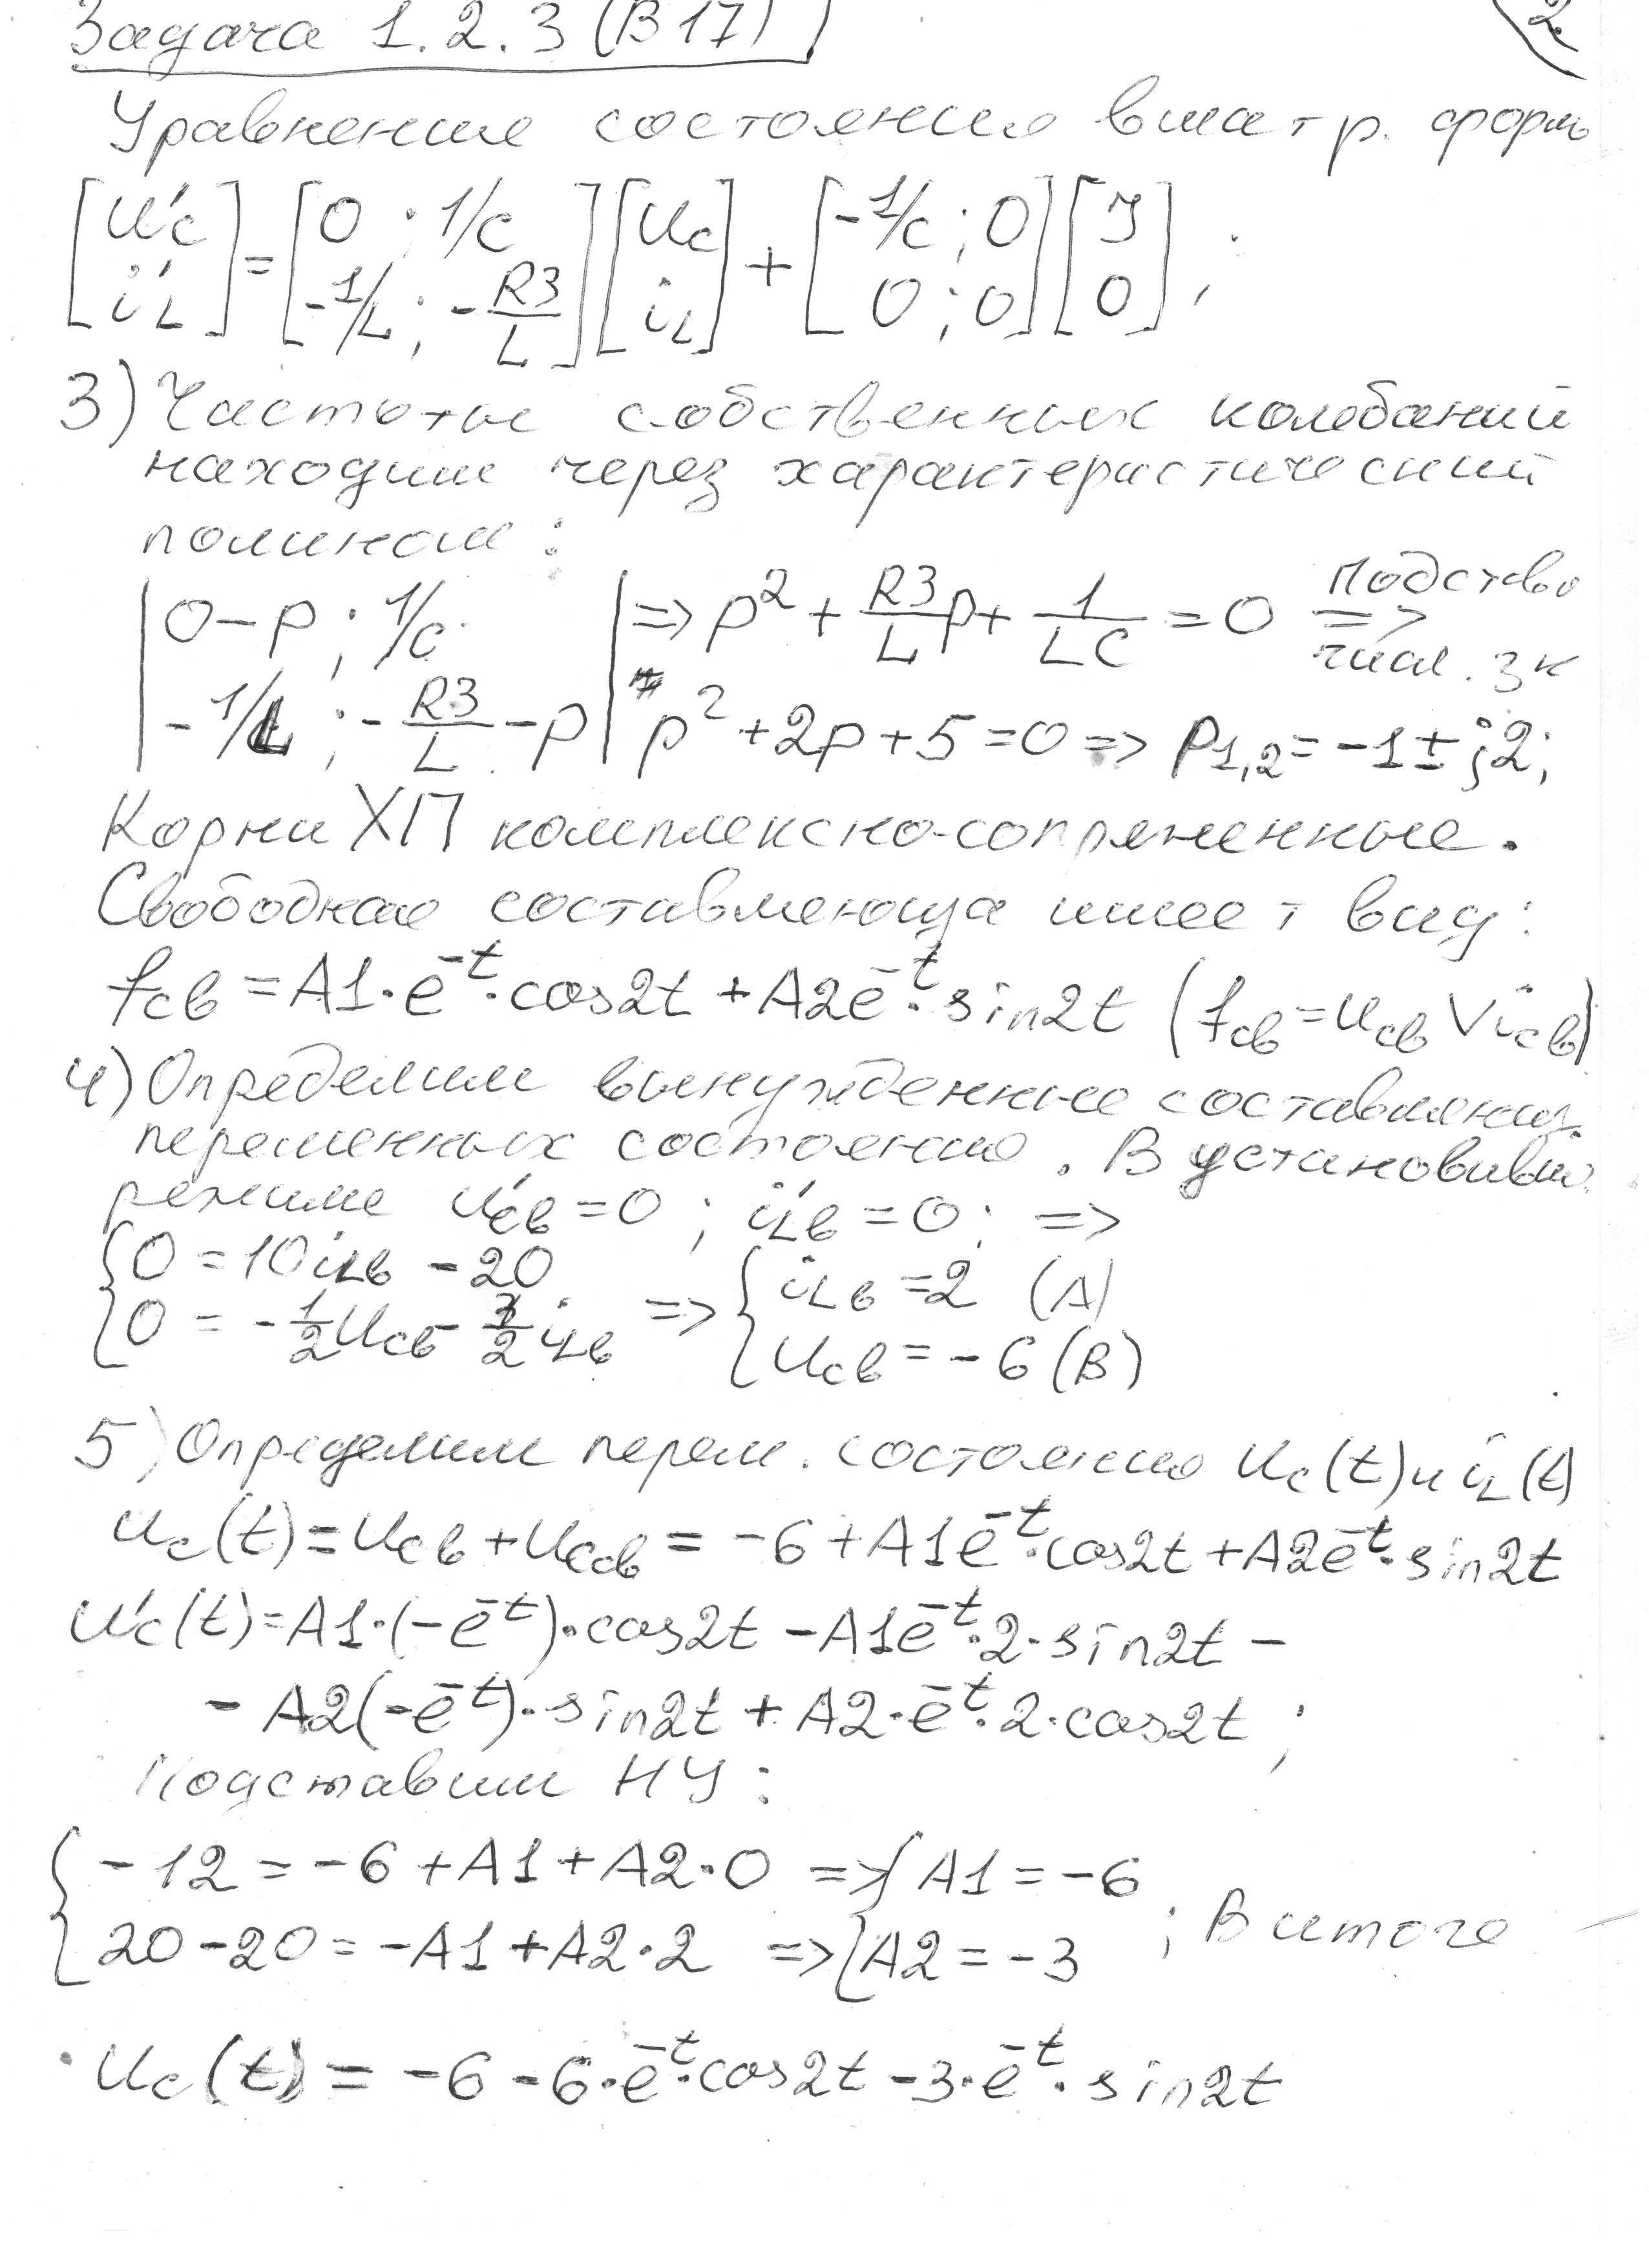 Задача 1.2.3 (В17)
2.
Уравнения состояния в матр. форм
[u'c; i'L] = [0 ; 1/C; -1/L ; -R3/L] [uc; iL] + [-1/C ; 0; 0 ; 0] [J; 0] ;
3) Частоты собственных колебаний
находим через характеристический
полином:
|0-p ; 1/C; -1/L ; -R3/L -p| => p² + R3/L p + 1/LC = 0 => подставо числ. зн
p² + 2p + 5 = 0 => p1,2 = -1 ± j2;
Корни ХП комплексно-сопряженные.
Свободная составляюща имеет вид:
fсв = A1·e^-t·cos2t + A2e^-t·sin2t (fсв = uсв ∨ iсв)
4) Определим вынужденные составляющ.
переменных состояния. В установивш.
режиме u'cв = 0 ; i'Lв = 0; =>
{0 = 10iLв - 20 => {iLв = 2 (А)
{0 = -1/2 ucв - 3/2 iLв {ucв = -6 (В)
5) Определим перем. состояния uc(t) и iL(t)
uc(t) = ucв + ucсв = -6 + A1e^-t·cos2t + A2e^-t·sin2t
u'c(t) = A1·(-e^-t)·cos2t - A1e^-t·2·sin2t -
- A2(-e^-t)·sin2t + A2·e^-t·2·cos2t ;
Подставим НУ:
{-12 = -6 + A1 + A2·0 => {A1 = -6
{20-20 = -A1 + A2·2 => {A2 = -3 ; В итоге
uc(t) = -6 - 6·e^-t·cos2t - 3·e^-t·sin2t